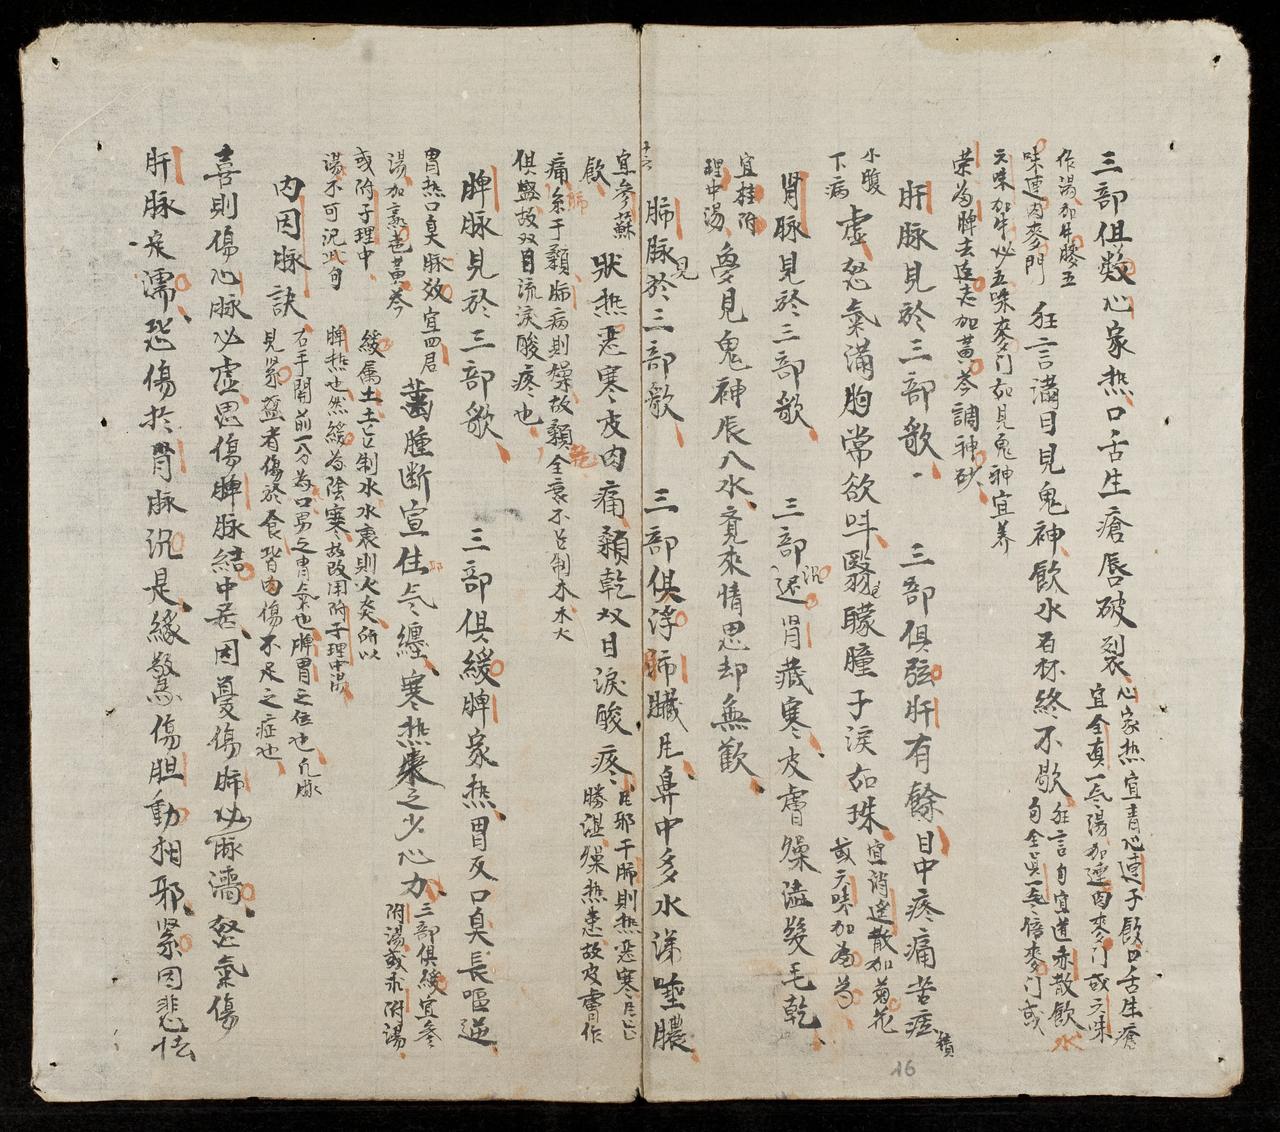 三部俱数心家热口舌生瘡唇破裂
心家热宜青心連子飲口舌生瘡
宜全真一氣湯加連肉麥門或六味
作湯加牛膝五
味連肉麥門
狂言满目見鬼神飲水百杯終不歇
狂言句宜導赤散飲水
句全真一氣倍麥門或
六味加牛必五味麥门如見鬼神宜养
荣為脾去遠志加黃芩調神砂
肝脉見於三部歌
三部俱弦肝有餘目中疼痛苦痃積
小腹
下病
虚怒氣滿胸常欲呌翳矇瞳子淚如珠
宜消遥散加菊花
或六味加為
腎脉見於三部歌
三部沉遲肾藏寒皮膚燥澁髮毛乾
宜桂附
理中湯
夢見鬼神辰入水覓來情思却無歡
十六
肺脉見於三部歌
三部俱浮肺臓
鼻中多水涕唾膿
宜參蘇
飲
狀热惡寒皮肉痛顙乾双目淚酸疼
邪干肺則热惡寒
勝湿燥热患故皮膚作
痛系于顙肺病則燥故顙
全衰不
制木木火
俱盛故双目流淚酸疼也
脾脉見於三部歌
三部俱緩脾家热胃反口臭長嘔逆
胃热口臭脉效宜四君
湯加
黃芩
齒腫断宣住气纏寒热來之少心力
三部俱緩宜參
附湯或朮附湯
或附子理中
湯不可泥此句
緩属土土
制水水衰則火炎所以
脾热也然緩為陰寒故改用附子理中湯
内因脉訣
右手関前一分為口
之胃氣也脾胃之位也凡脉
見紧盛者傷於食皆内傷不足之症也
喜則傷心脉必虚思傷脾脉結中居因憂傷肺必脉濇怒氣傷
肝脉定濡恐傷於腎脉沉是緣驚傷胆動相邪紧因悲怯
16